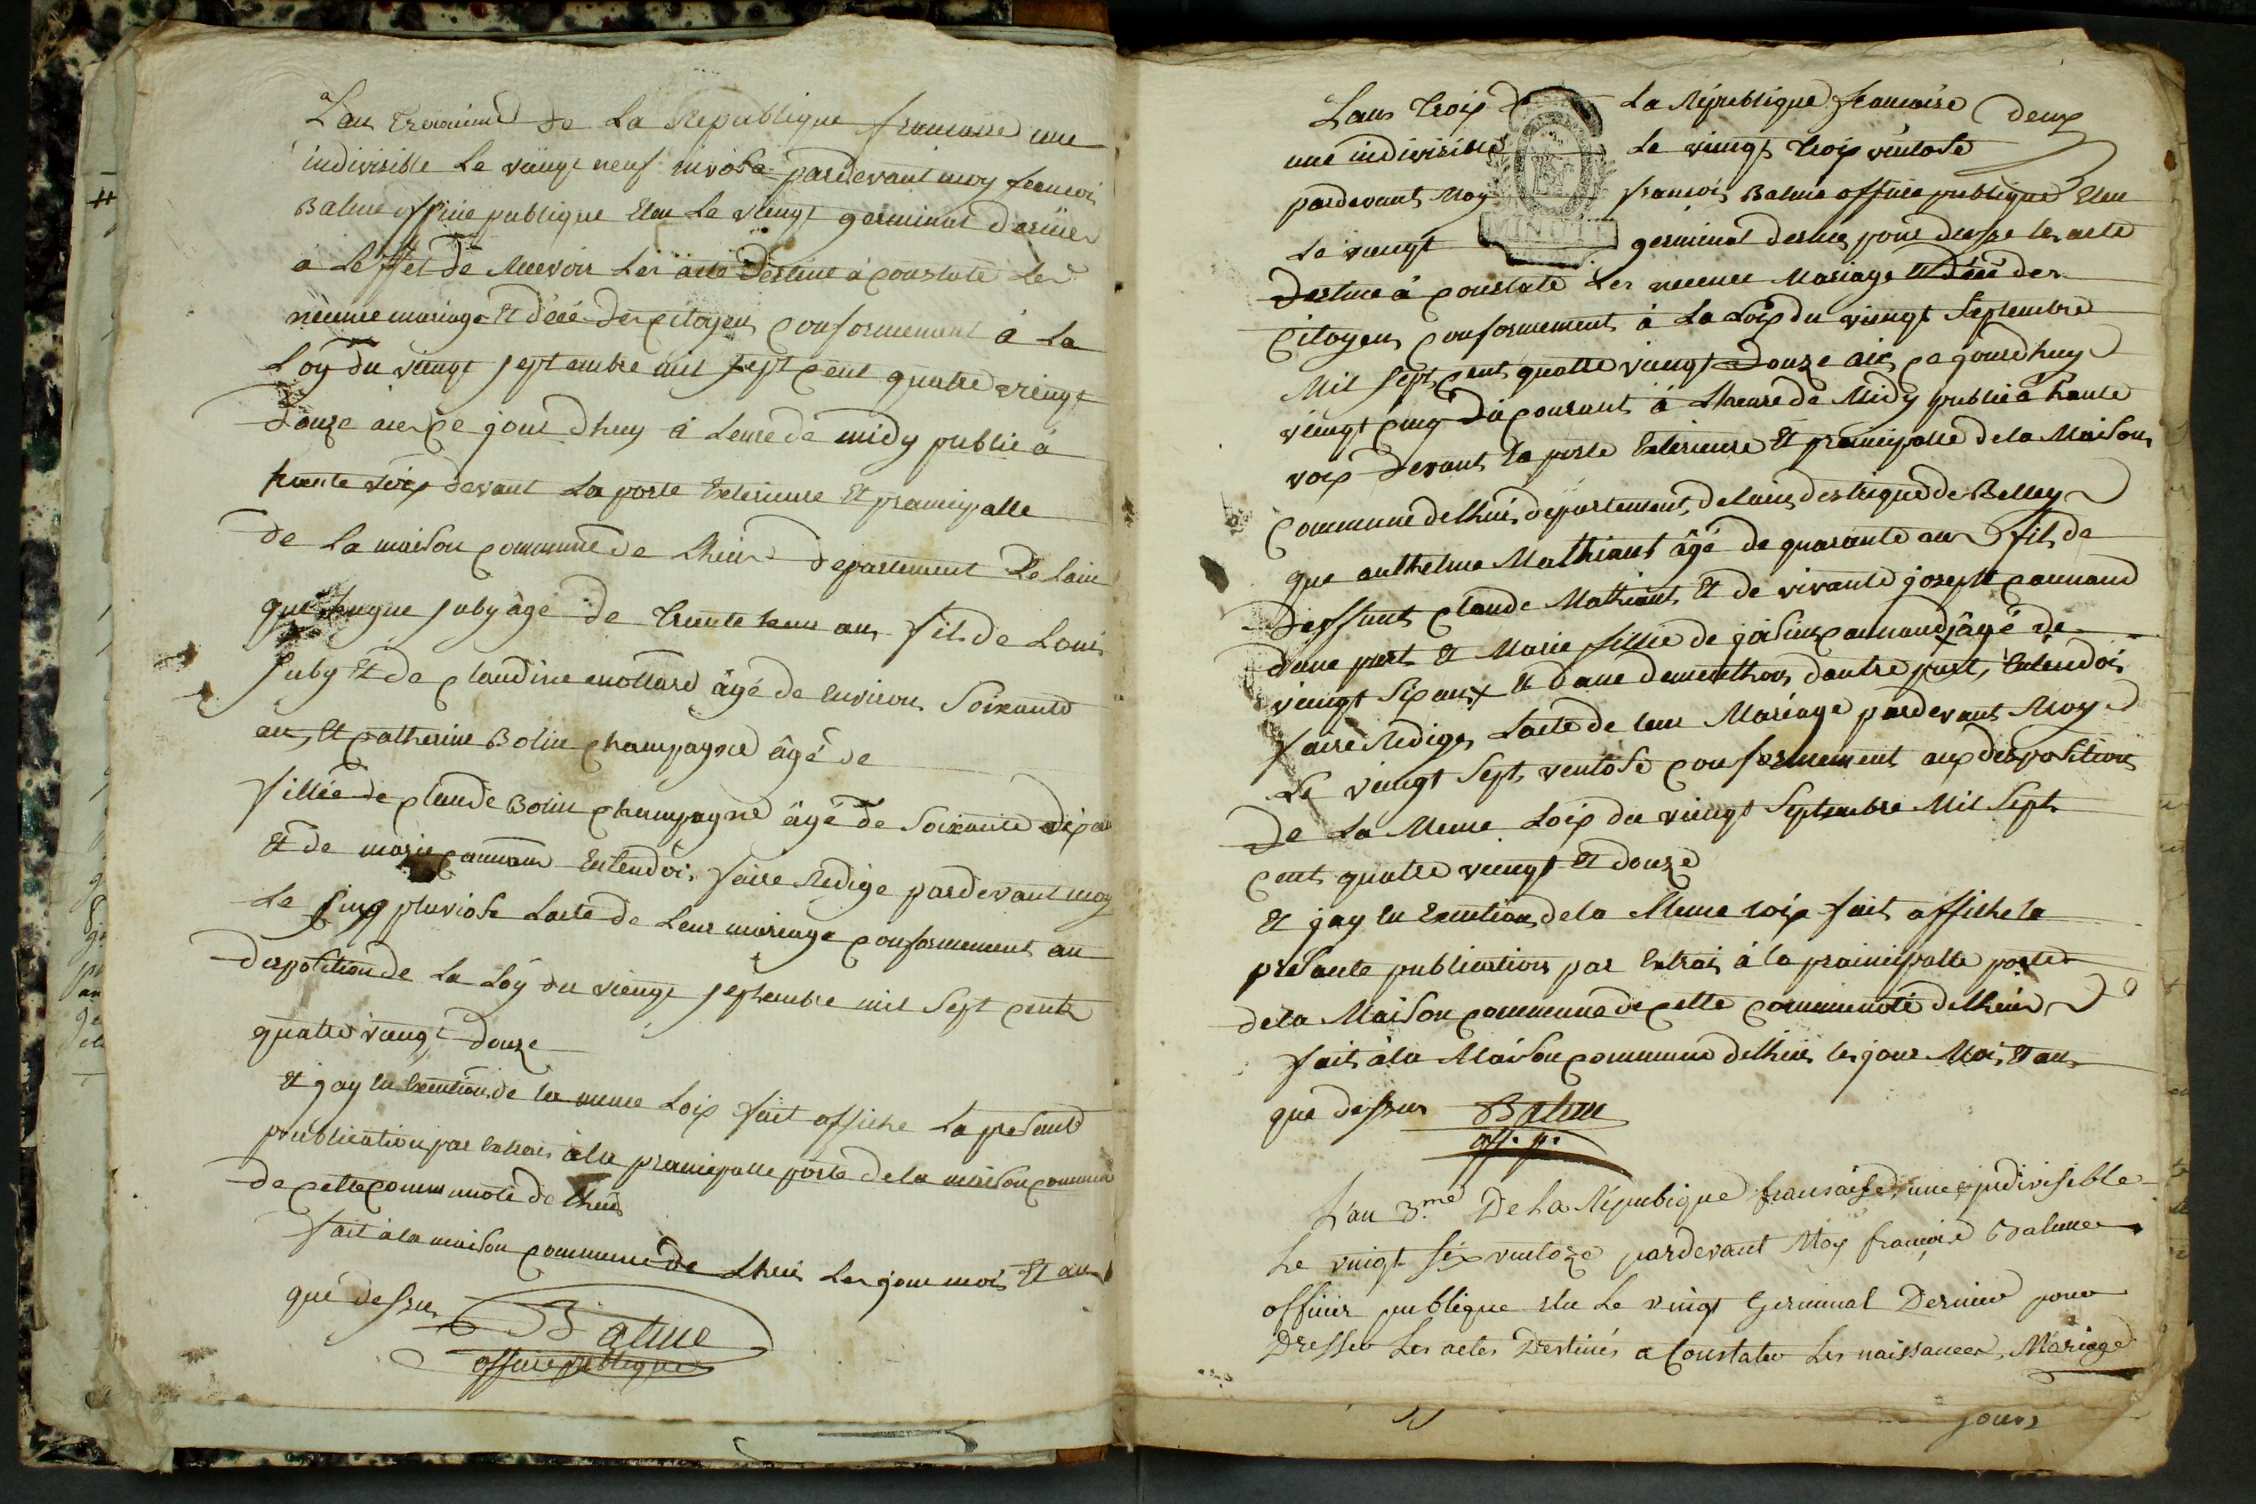 Lan troizieme de La Republique francoise une
indivisible Le vingt neuf nivose pardevant moy francois
Balme officie publique Elue Le vingt germinal dernier
a Leffet de Recevoir Les acte Destine a constate Les
nessence mariage Et décé des citoyens conformement à La
Loy du vingt septembre mil sept cent quatre vingt
Douze aies ce jour dhuy à Leure de midy publie à
haute voix devant La porte Exterieure Et prancipalle
de La maison commune de Lhuis departement De Lain
que hugue juby âge de trente ans fils de Louis
juby Et de claudine mollard âgé de Environ Soixante
ans, Et catherine Bolin champagne âgé de
fillie de claude Bolin champagne âgé de Soixante dix ans
Et de marie cannand Entendois faire Redige pardevant moy
Le sinq pluviose Lacte de Leur mariage conformement au
disposition de La Loy du vingt septembre mil Sept cents
quatre vingt douze
Et jay En Exention de la meme Loix fait affiche La presente
publication par Extrais à la prancipalle porte de la maison commune
de cette communoté de Lhuis
fait à la maison commune de Lhuis Les jour mois Et an
que dessus
Balme
officie publique
Lans troix La Republique francoise deux
une indivisible Le vingt troix ventose
pardevant Moy francois Balme officie publique Elue
Le vingt germinal dernier pour dresse les acte
MINUTE
Destine à constate Les nessence Mariage Et Décé des
Citoyens conformement à La Loix du vingt Septembre
Mil Sept cent quatre vingt Douze aie ce jourdhuy
vingt cinq du courant à Lheure de Midy publie à haute
voix Devant La porte Exterieure Et prancipalle de la Maison
commune de Lhuis departement de lain, destrique de Belley
que anthelme Mathiant âgé de quarante ans fils de
Deffunt claude Mathiant Et de vivante joseph cannand
dune part Et Marie fillie de cannand âgé de
vingt Six ans Et Dane Dementhon dautre part, Entendois
faire Redige Lacte de leur Mariage pardevant Moy
Le vingt Sept ventose conformement aux dispositions
De La Meme Loix du vingt Septembre Mil Sept
cent quatre vingt Et douze
Et jay En Exention de la Meme Loix fait affiche la
presante publication par Extrais à la prainsipalle porte
de la Maison commune de cette communoté de Lhuis
fait à la Maison commune de Lhuis les jour Moi, Et an
que dessus Balme
off. p.
L'an 3.me De La Répubique fransaise, une indivisible
Le vingt Six ventoze pardevant Moy françois Balme
officier publique elu Le vingt Germinal Dernier pour
Dresser Les actes Destinés a Constater Les naissances, Mariage
jours